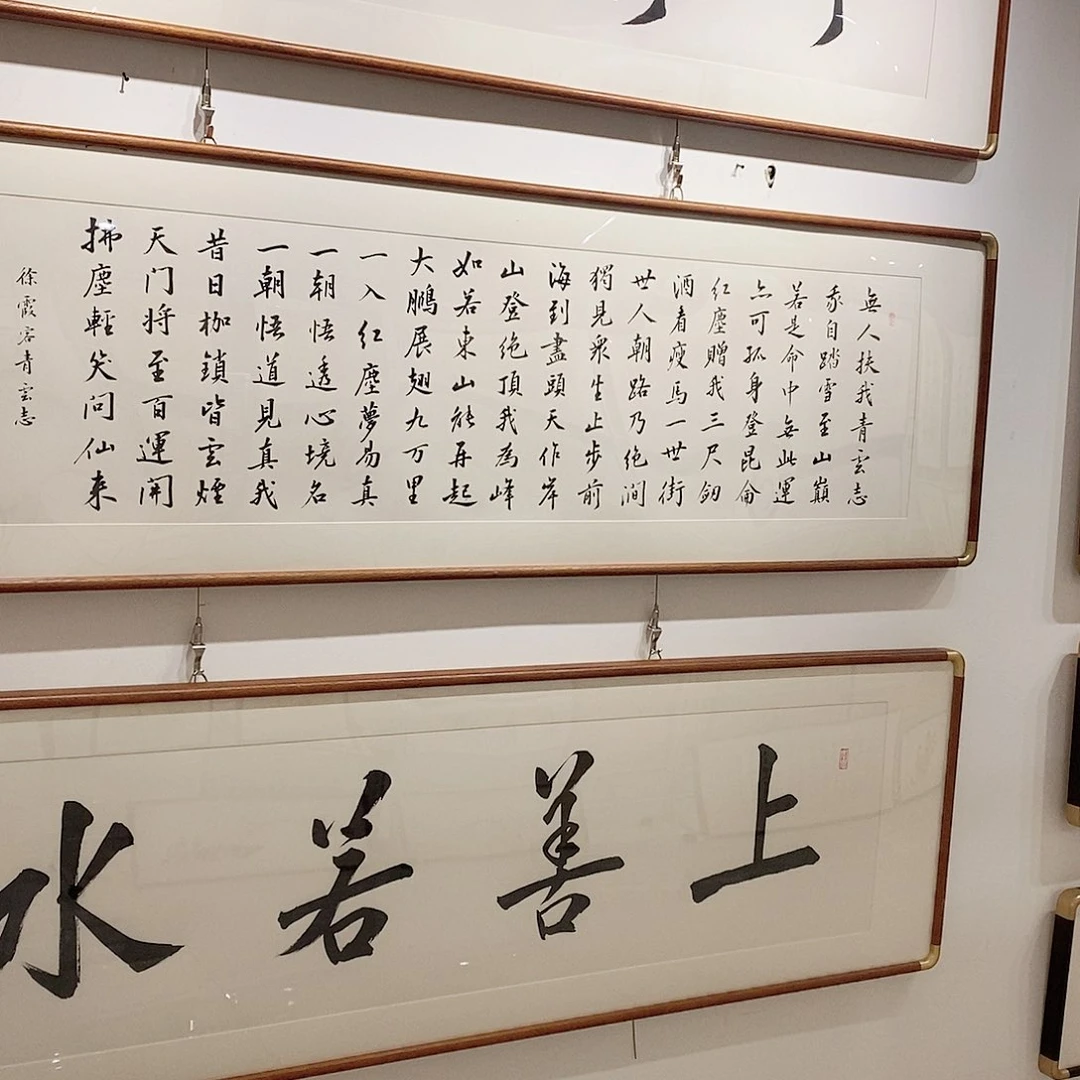 無人扶我青雲志
我自踏雪至山巔
若是命中無此運
亦可孤身登昆侖
红塵贈我三尺劒
酒看瘦馬一世街
世人朝路乃绝澗
獨見衆生止步前
海到盡頭天作岸
山登绝頂我為峰
如若東山能再起
大鵬展翅九万里
一入红塵夢易真
一朝悟透心境名
一朝悟道見真我
昔日枷鎖皆雲煙
天门将至百運开
拂塵輕笑问仙来
徐霞客青雲志
上善若水